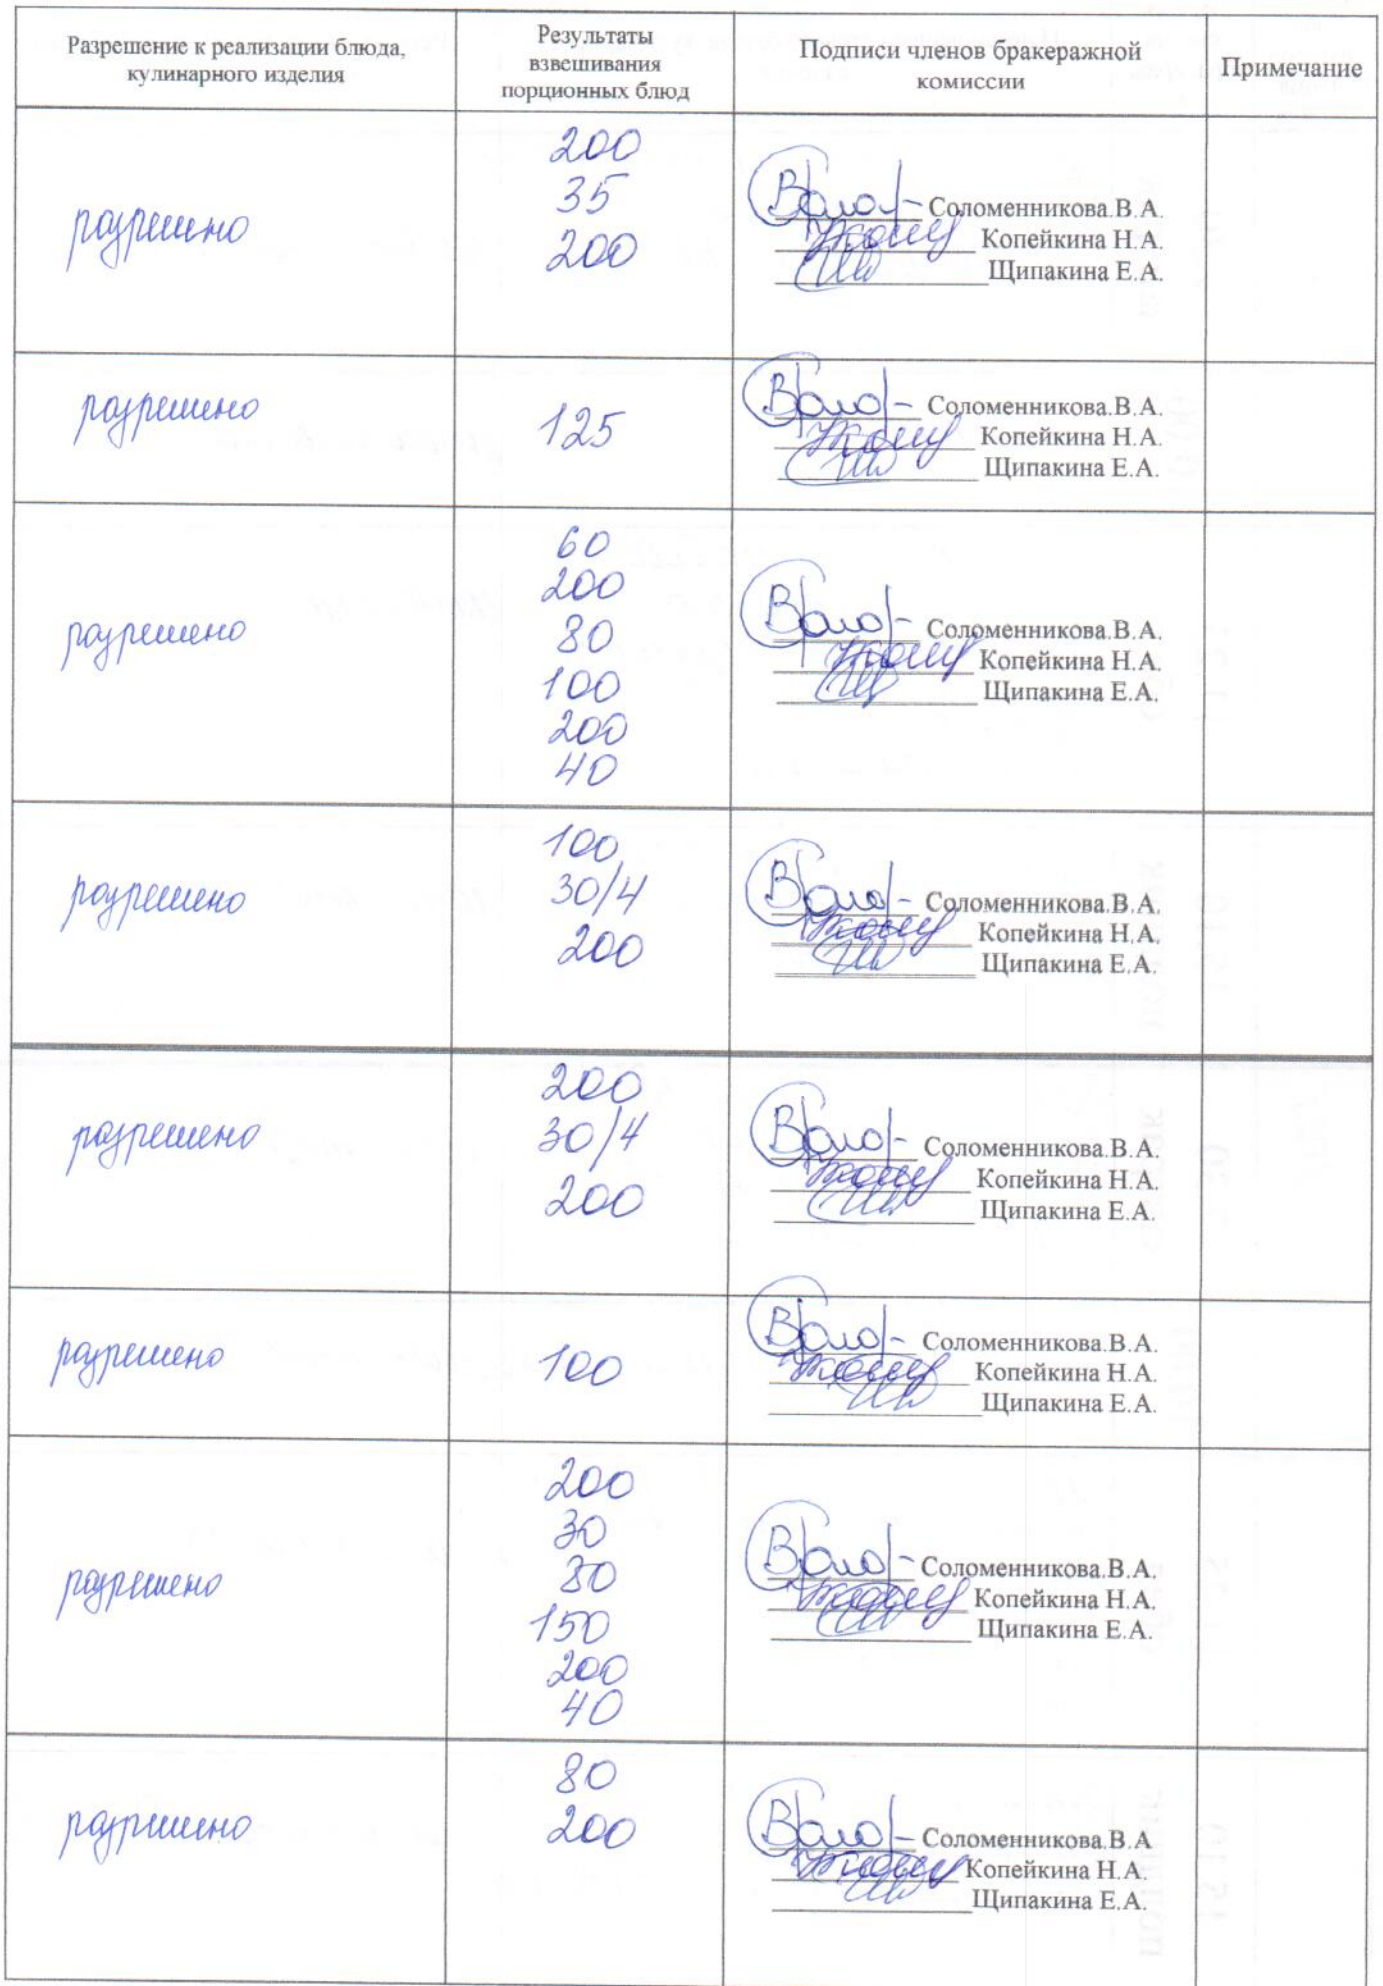 Разрешение к реализации блюда,
кулинарного изделия
Результаты
взвешивания
порционных блюд
Подписи членов бракеражной
комиссии
Примечание
разрешено
200
35
200
Соломенникова.В.А.
Копейкина Н.А.
Щипакина Е.А.
разрешено
125
Соломенникова.В.А.
Копейкина Н.А.
Щипакина Е.А.
разрешено
60
200
80
100
200
40
Соломенникова.В.А.
Копейкина Н.А.
Щипакина Е.А.
разрешено
100
30/4
200
Соломенникова.В.А.
Копейкина Н.А.
Щипакина Е.А.
разрешено
200
30/4
200
Соломенникова.В.А.
Копейкина Н.А.
Щипакина Е.А.
разрешено
100
Соломенникова.В.А.
Копейкина Н.А.
Щипакина Е.А.
разрешено
200
30
80
150
200
40
Соломенникова.В.А.
Копейкина Н.А.
Щипакина Е.А.
разрешено
80
200
Соломенникова.В.А
Копейкина Н.А.
Щипакина Е.А.